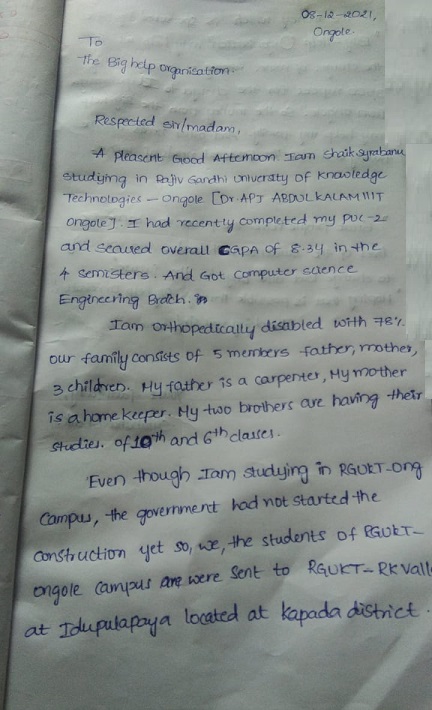 08-12-2021,
Ongole.
To
The Big help organisation.
Respected sir/madam,
A pleasent Good Afternoon. Iam Shaik.Syrabanu
studying in Rajiv Gandhi University Of Knowledge
Technologies - Ongole [Dr. APJ ABDUL KALAM IIIT
ongole]. I had recently completed my PUC-2
and scaured overall CGPA of 8.34 in the
4 semisters. And Got computer science
Engineering Brach. in
Iam orthopedically disabled with 78%
our family consists of 5 members father, mother,
3 children. My father is a carpenter, My mother
is a home keeper. My two brothers are having their
studies. of 10th and 6th classes.
Even though Iam studying in RGUKT-ong
Campus, the government had not started the
construction yet so, we, the students of RGUKT-
ongole campus are were sent to RGUKT-RKvall
at Idupulapaya located at kapada district.